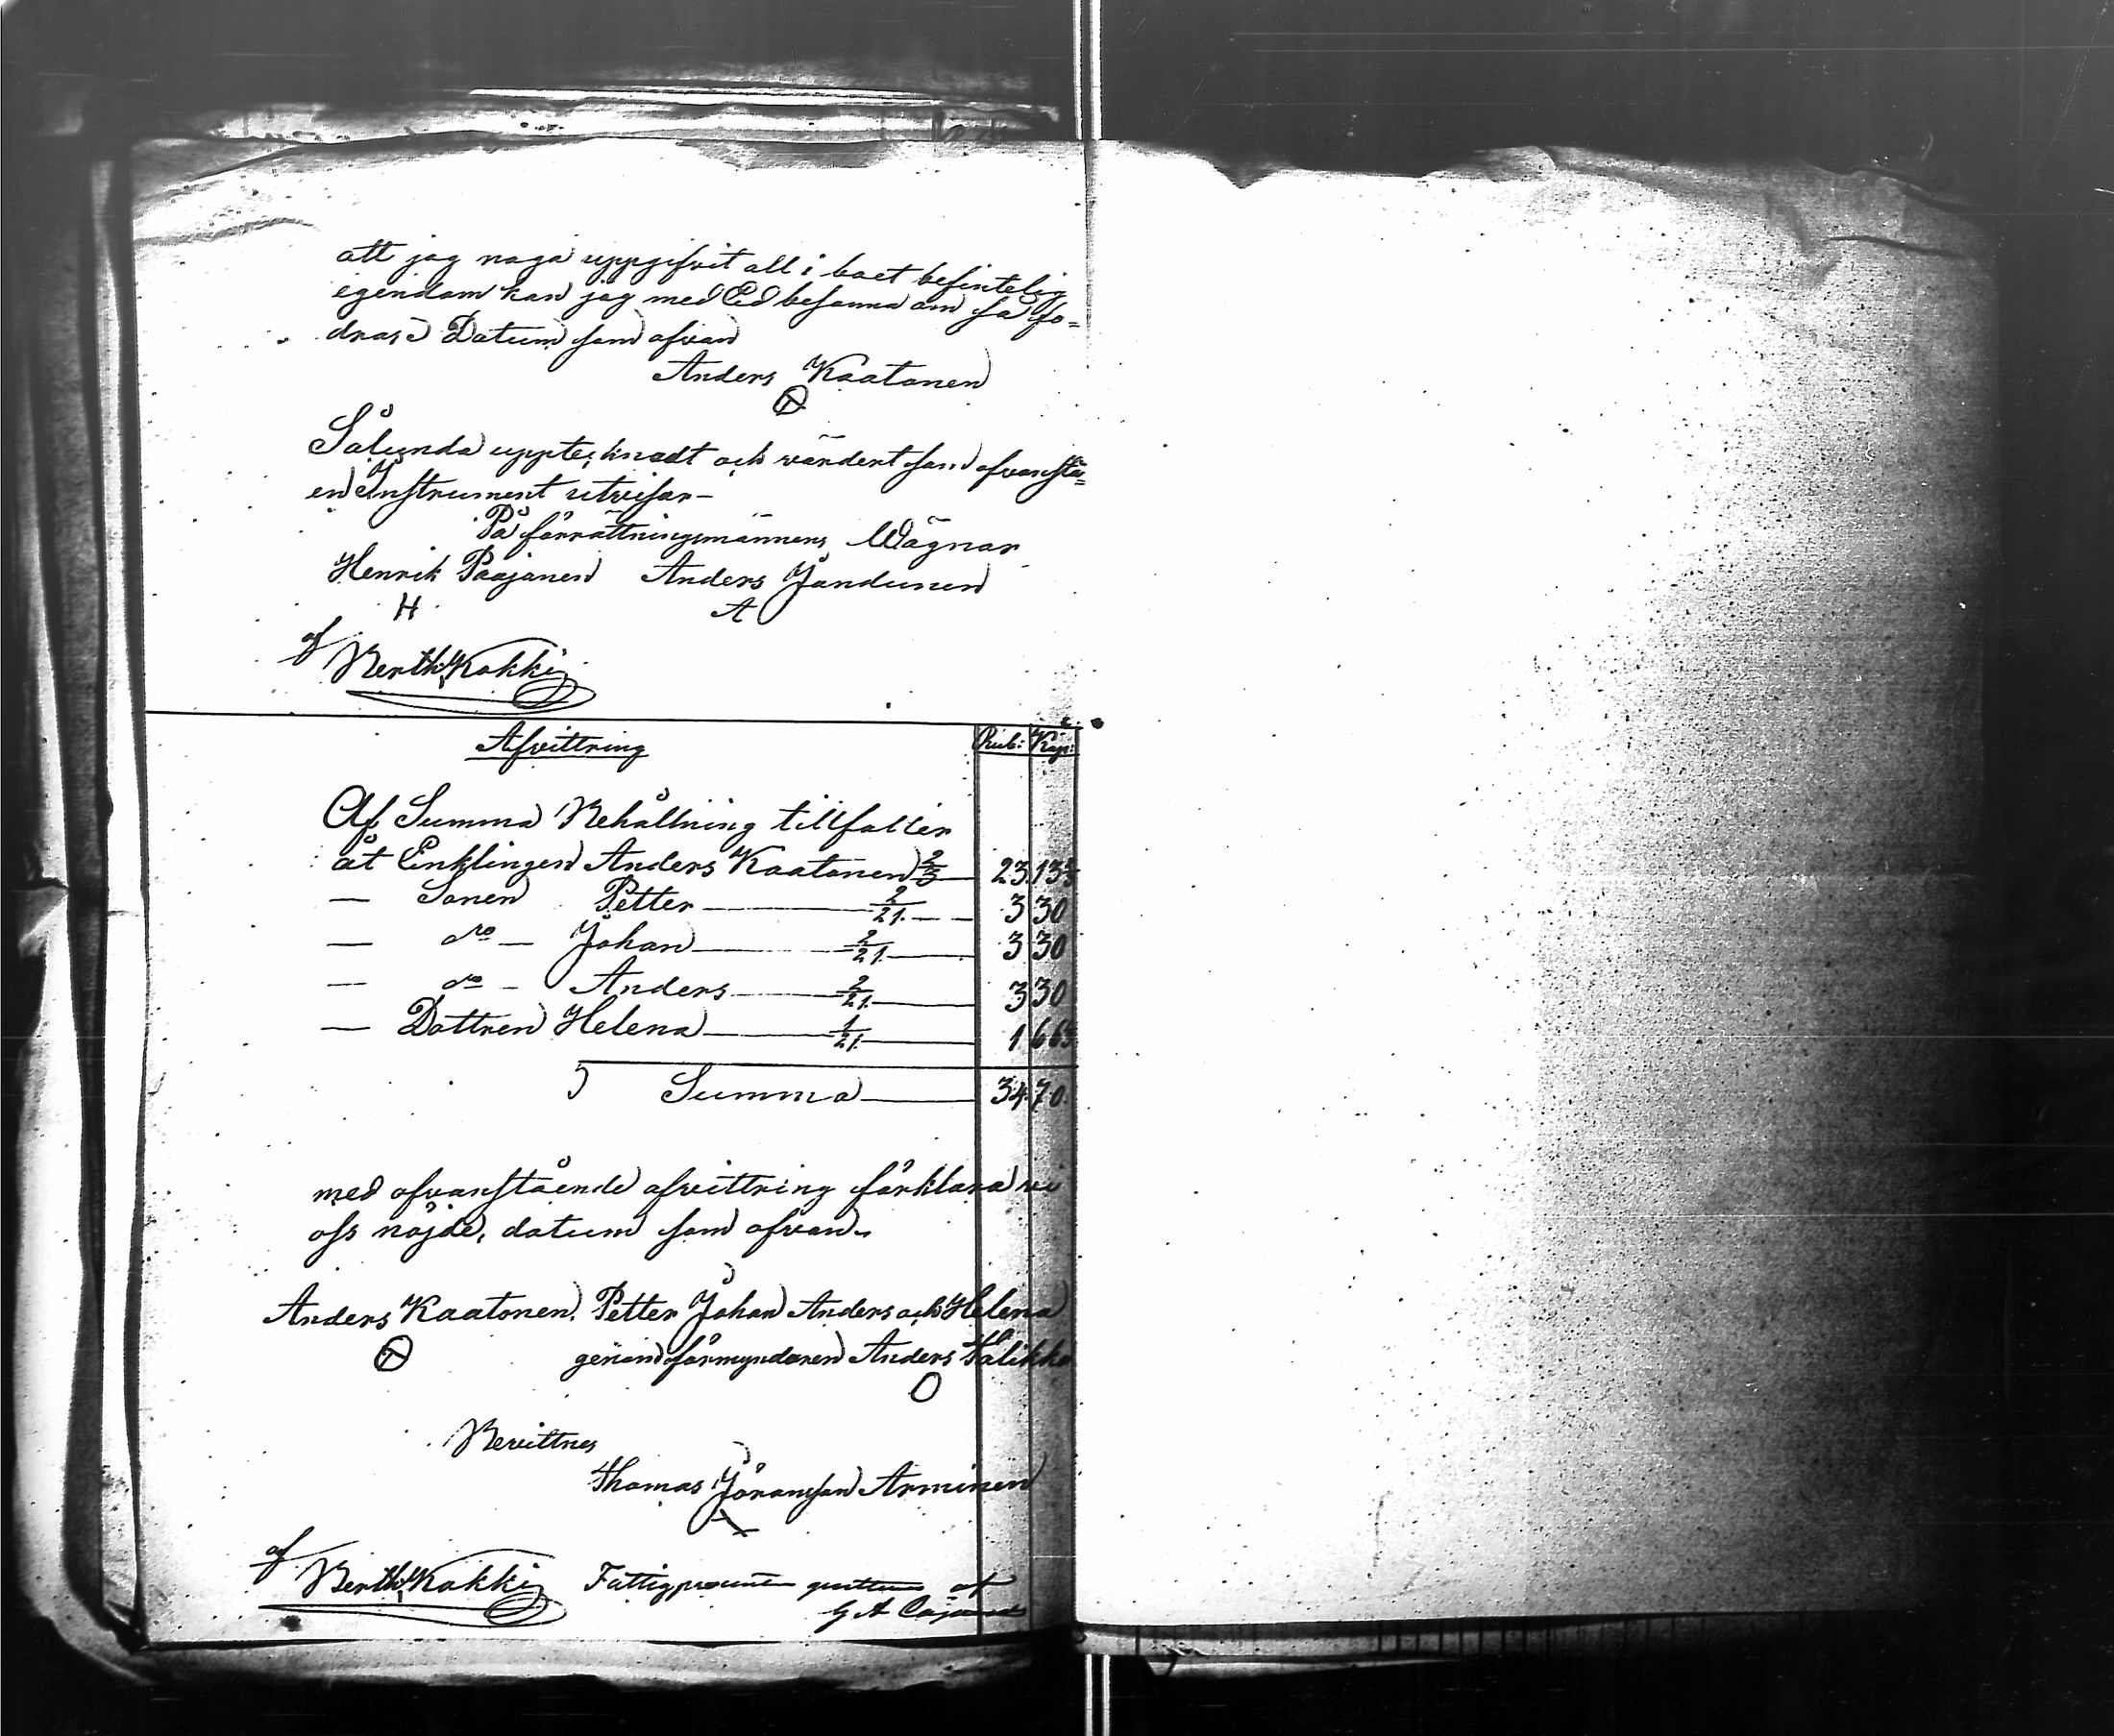 att jag noga uppgifvit all i boet befintelig
egendom kan jag med Ed besanna om så fo=
dras Datum som ofvan
Anders Kaatonen
Sålunda uppteknadt och värdert som ofvanstå=
end Instrument utvisar-
På förrättningsmännens Wägnar
Henrik Paajanen Anders Jandunen
H A
af
Berth: Kokki
Afvittring Rub: Kop:
Af Summa Behållning tillfaller
åt Enklingen Anders Kaatonen 2/3 23 13 1/3
— Sonen Petter 2/21 3 30
— do — Johan 2/21 3 30
— do — Anders 2/21 3 30
— Dottren Helena 1/21 1 66 2/3
Summa 34 70
med ofvanstående afvittring förklara vi
oss nöjde, datum som ofvan.
Anders Kaatonen. Petter Johan Anders och Helena
genom förmyndaren Anders Halikka
Bevittnes
Thomas Göransson Arminen
af
Berth: Kokki Fattigprocent qvitteras af
G A